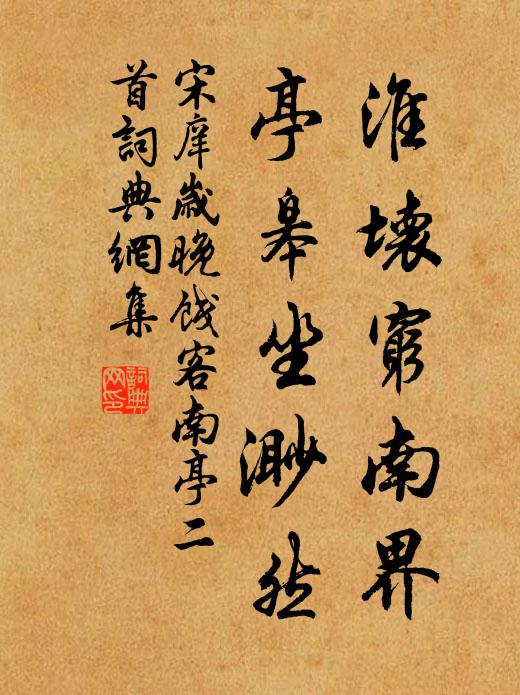 淮壊窮南界
亭皋坐渺然
宋庠歲晚餞客南亭二
首詞典網集
詞典
网印